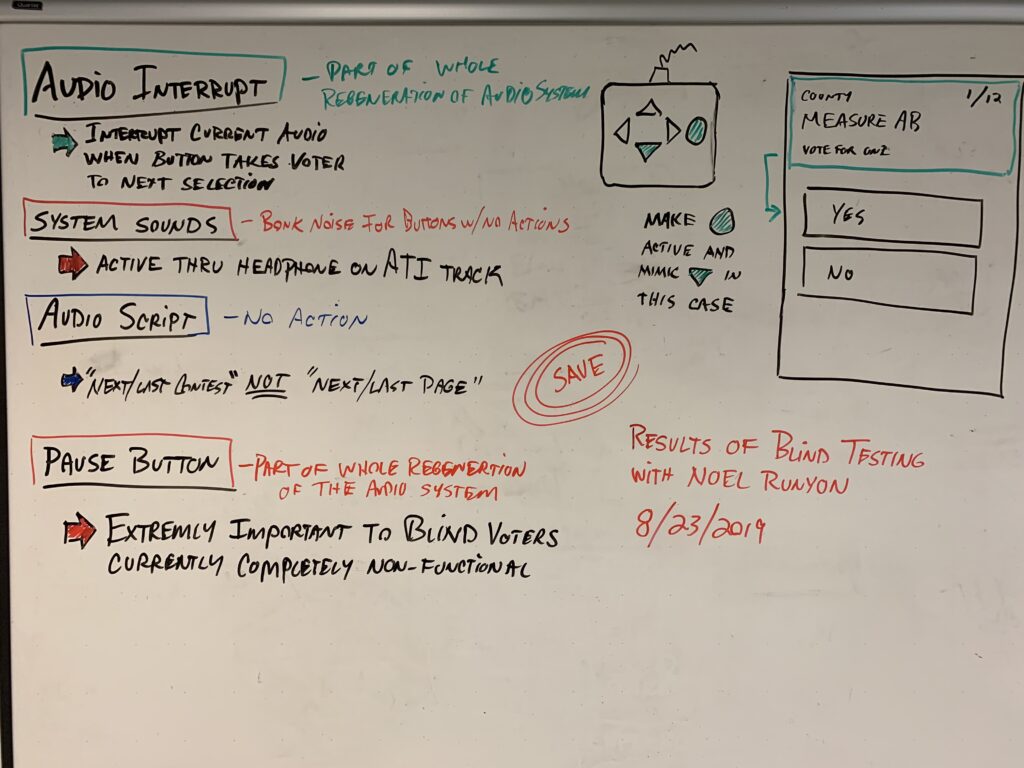 AUDIO INTERRUPT
- PART OF WHOLE
REGENERATION OF AUDIO SYSTEM
INTERRUPT CURRENT AUDIO
WHEN BUTTON TAKES VOTER
TO NEXT SELECTION
SYSTEM SOUNDS
- BONK NOISE FOR BUTTONS W/NO ACTIONS
ACTIVE THRU HEADPHONE ON ATI TRACK
AUDIO SCRIPT
- NO ACTION
"NEXT/LAST CONTEST" NOT "NEXT/LAST PAGE"
SAVE
PAUSE BUTTON
- PART OF WHOLE REGENERTION
OF THE AUDIO SYSTEM
EXTREMLY IMPORTANT TO BLIND VOTERS
CURRENTLY COMPLETELY NON-FUNCTIONAL
MAKE
ACTIVE AND
MIMIC IN
THIS CASE
COUNTY 1/12
MEASURE AB
VOTE FOR ONE
YES
NO
RESULTS OF BLIND TESTING
WITH NOEL RUNYON
8/23/2019